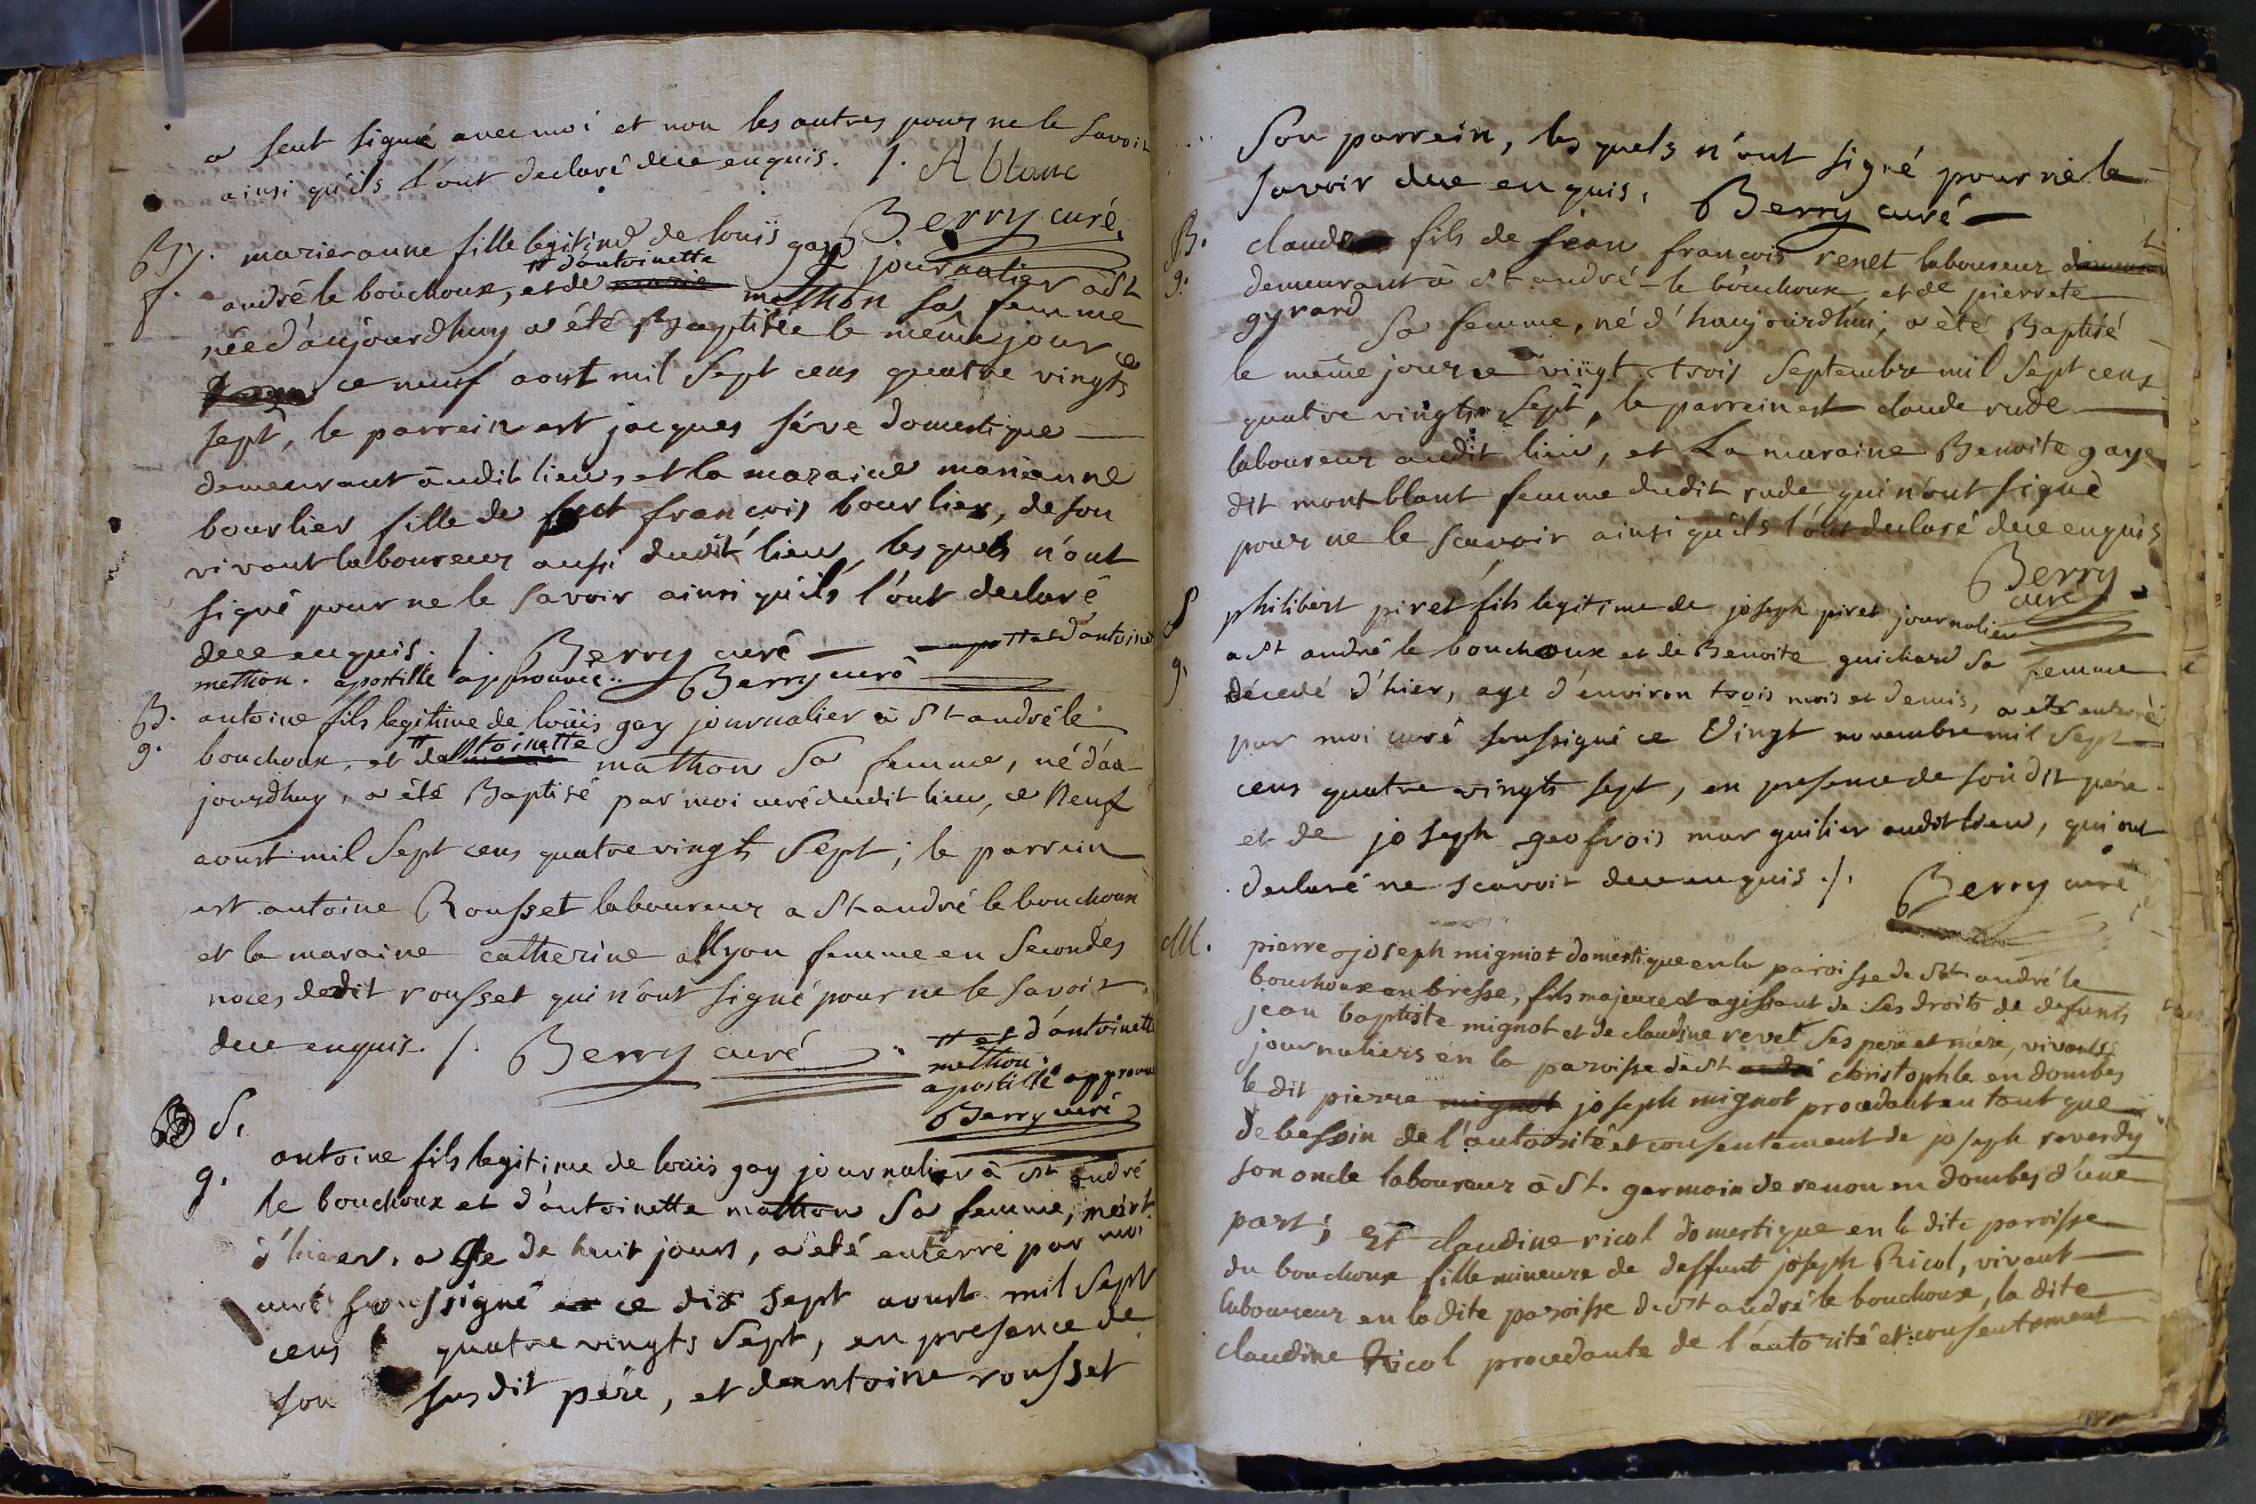 a seul signé avec moi et non les autres pour ne le savoir
ainsi qu'ils l'ont declaré dee enquis. /. A blanc
Berry curé.
B. marie anne fille legitime de loüis gay journalier à St
f. andré le bouchoux, et de marie # d'antoinette mathon sa femme
née d'aujourdhuy a été Baptisée le même jour ce
ce neuf aout mil sept cens quatre vingts
sept, le parrein est jacques séve domestique
demeurant audit lieu, et la maraine marianne
bourlier fille de fut françois bourlier, de son
vivant laboureur aussi dudit lieu, les quels n'ont
signé pour ne le savoir ainsi qu'ils l'ont declaré
dee enquis. /. Berry curé # et d'antoinet
mathon. apostille approuvée. Berry curé
B. antoine fils legitime de loüis gay journalier à St andré le
g. bouchoux, et de # antoinette mathon sa femme, né d'au-
jourdhuy, a été Baptisé par moi curé dudit lieu, ce Neuf
aoust mil sept cens quatre vingts sept; le parrein
est antoine Rousset laboureur a St andré le bouchoux
et la maraine catherine allyon femme en secondes
noces dudit rousset qui n'ont signé pour ne le savoir
dee enquis. /. Berry curé
# et d'antoinette
mathon.
apostille approuvé
Berry curé
B S.
g. antoine fils legitime de loüis gay journalier à St andré
le bouchoux et d'antoinette mathon sa femme, mort
d'hier, age de huit jours, a été enterré par moi
curé soussigné ce dix sept aoust mil sept
cens quatre vingts sept, en presence de
son susdit pére, et de antoine rousset
son parrein, les quels n'ont signé pour ne le
savoir dee enquis. Berry curé
B. claude fils de jean françois renet laboureur demeurant
g. demeurant à St andré le bouchoux, et de pierrete
gyrard sa femme, né d'haujourdhui, a été Baptisé
le même jour vingt trois septembre mil sept cens
quatre vingts sept, le parrein est claude rude
laboureur audit lieu, et La maraine Benoite gaye
dit mont blant femme dudit rude qui n'ont signé
pour ne le scavoir ainsi qu'ils l'ont declaré dee enquis
Berry
curé
S philibert piret fils legitime de joseph piret journalier
g. a St andré le bouchoux et de Benoite guichard sa femme
décedé d'hier, age d'environ trois mois et demis, a été enterré
par moi curé soussigné ce Vingt novembre mil sept
cens quatre vingts sept, en presence de son dit pére
et de joseph geofrois marguilier audit lieu, qui ont
declaré ne scavoir dee enquis ./. Berry curé
M. pierre joseph migniot domestique en la paroisse de St andré le
bouchoux en bresse, fils majeure et agissant de ses droits de defunts
jean baptiste mignot et de claudine revel ses pere et mére, vivants
journaliers en la paroisse de St andré christophle en dombes
le dit pierre mignot joseph mignot procedant en tant que
de bessoin de l'autorité et consentement de joseph reverdy
son oncle laboureur à St. germain de renon en dombes d'une
part; Et claudine ricol domestique en la dite paroisse
du bouchoux fille mineure de deffunt joseph Ricol, vivant
laboureur en la dite paroisse de St andré le bouchoux, la dite
claudine Ricol procedante de l'autorité et consentement